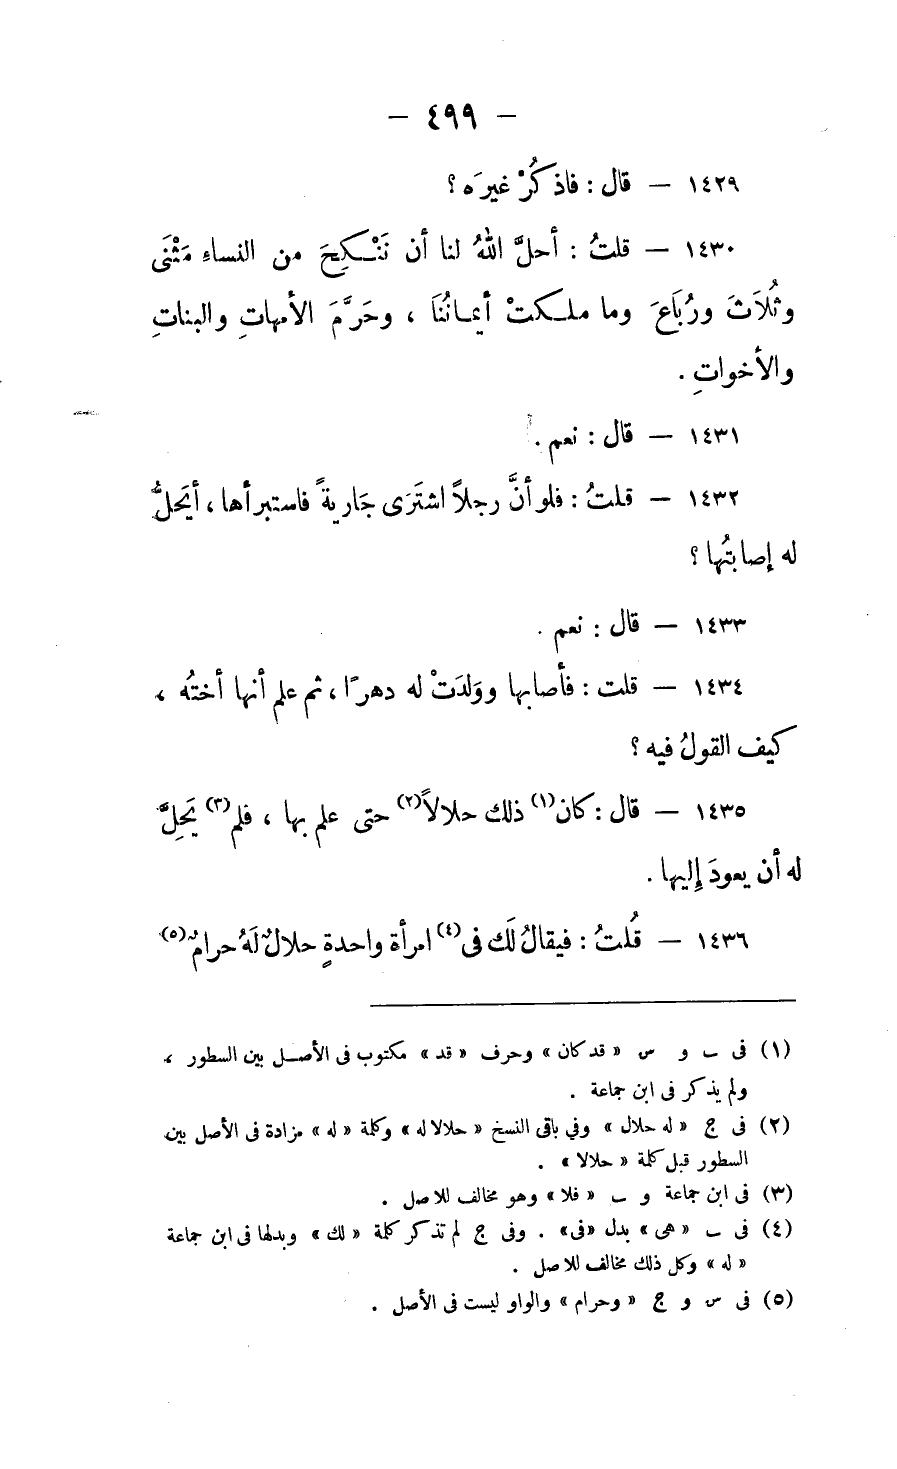 — ٤٩٩ —
١٤٢٩ — قال : فاذكُرْ غيرَه ؟
١٤٣٠ — قلتُ : أحلَّ اللهُ لنا أن نَنْكِحَ من النساءِ مَثْنَى
وثُلَاثَ ورُبَاعَ وما ملكتْ أيمانُنَا ، وحَرَّمَ الأمهاتِ والبناتِ
والأخواتِ .
١٤٣١ — قال : نعم .
١٤٣٢ — قلتُ : فلو أنَّ رجلاً اشتَرَى جَاريةً فاستبرأها ، أيَحلُّ
له إصابتُها ؟
١٤٣٣ — قال : نعم .
١٤٣٤ — قلت : فأصابها ووَلدَتْ له دهرًا ، ثم علم أنها أختُه ،
كيف القولُ فيه ؟
١٤٣٥ — قال : كان(١) ذلك حلالاً(٢) حتى علم بها ، فلم(٣) يَحِلَّ
له أن يعودَ إليها .
١٤٣٦ — قُلتُ : فيقالُ لَك فى(٤) امرأة واحدةٍ حلالٌ لَهُ حرامٌ(٥)
(١) فى ب و س « قد كان » وحرف « قد » مكتوب فى الأصل بين السطور ،
ولم يذكر فى ابن جماعة .
(٢) فى ج « له حلال » وفي باقى النسخ « حلالا له » وكلمة « له » مزادة فى الأصل بين
السطور قبل كلمة « حلالا » .
(٣) فى ابن جماعة و ب « فلا » وهو مخالف للاصل .
(٤) فى ب « هى » بدل « فى » . وفى ج لم تذكر كلمة « لك » وبدلها فى ابن جماعة
« له » وكل ذلك مخالف للاصل .
(٥) فى س و ج « وحرام » والواو ليست فى الأصل .